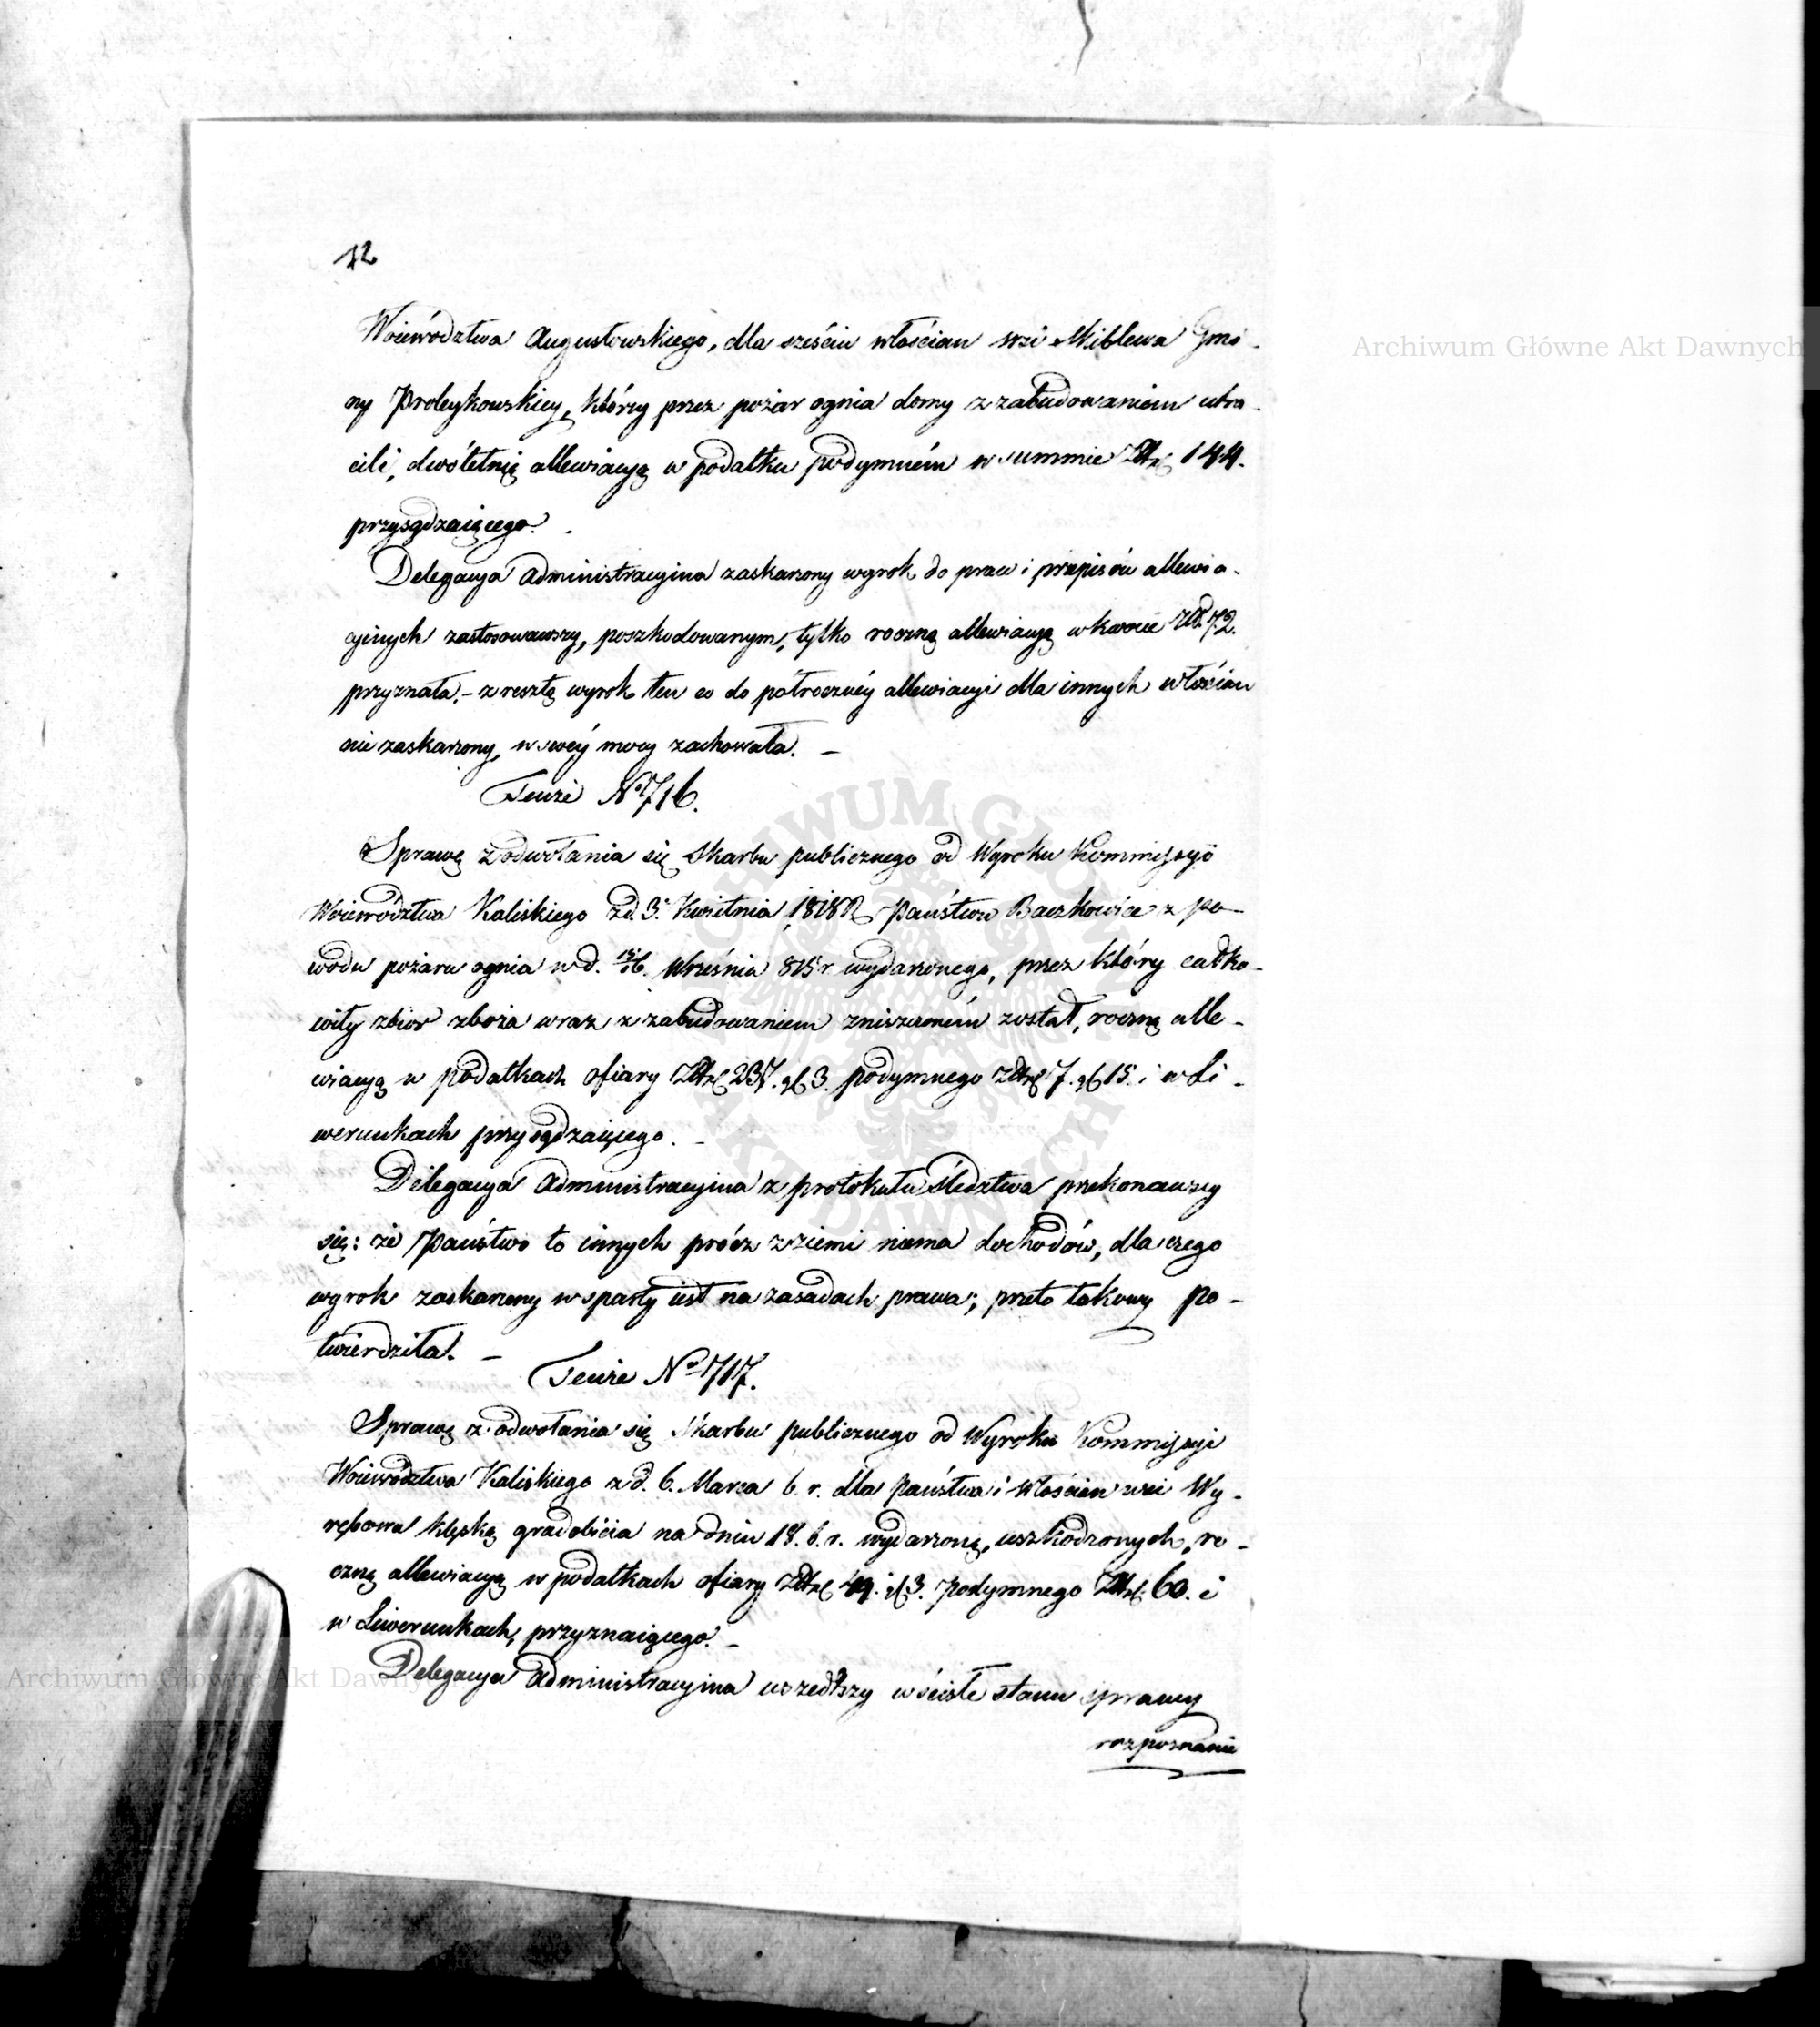 12
Woiewództwa Augustowskiego, dla sześciu włościan wsi Gmi-
ny Proleykowskiey, którzy przez pożar ognia domy z zabudowaniem utra-
cili, dwóletnią allewiacyą w podatku podymném w summie Złł. 144.
przysądzaiącego.
Delegacya Administracyina zaskarzony wyrok do praw i przepisów allewia-
cyinych zastosowawszy, poszkodowanym, tylko roczną allewiacyą w kwocie Złł. 72.
przyznała. - z resztą wyrok ten co do półroczney allewiacyi dla innych włościan
nie zaskarzony, w swéy mocy zachowała. -
Teuże No 716.
Sprawę z odwołania się Skarbu publicznego od Wyroku Kommissyi
Woiewództwa Kaliskiego z d. 3. Kwietnia 1818 R. Państwu Baczkowice z po-
wodu pożaru ognia w d. 15/16. Września 815 r. wydarzonego, przez który całko-
wity zbior zboża wraz z zabudowaniem zniszczoném został, roczną alle-
wiacyą w podatkach ofiary Złł. 237. gl 3. podymnego Złł. 7. gl 15. i w Li-
werunkach przysądzaiącego. -
Delegacya Administracyina z protokułu śledztwa przekonawszy
się: że Państwo to innych prócz z ziemi niema dochodów, dla czego
wyrok zaskarzony wsparty iest na zasadach prawa; przeto takowy po-
twierdziła. -
Teuże No 717.
Sprawę z odwołania się Skarbu publicznego od Wyroku Kommissyi
Woiewództwa Kaliskiego z d. 6. Marca b. r. dla państwa i Włościan wsi Wy-
rębowa klęską gradobicia na dniu 18. b. r. wydarzoną, uszkodzonych, ro-
czną allewiacyą w podatkach ofiary Złł. 49. gl 3. Podymnego Złł. 60. i
w Liwerunkach, przyznaiącego. -
Delegacya Administracyina wszedłszy w ścisłe stanu sprawy
rozpoznanie
Archiwum Główne Akt Dawnych
Archiwum Główne Akt Dawnych
ARCHIWUM GŁÓWNE
AKT DAWNYCH